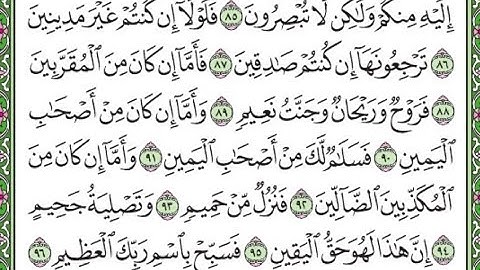 إِلَيْهِ مِنكُمْ وَلَٰكِن لَّا تُبْصِرُونَ ۝٨٥ فَلَوْلَآ إِن كُنتُمْ غَيْرَ مَدِينِينَ
۝٨٦ تَرْجِعُونَهَآ إِن كُنتُمْ صَٰدِقِينَ ۝٨٧ فَأَمَّآ إِن كَانَ مِنَ الْمُقَرَّبِينَ
۝٨٨ فَرَوْحٌ وَرَيْحَانٌ وَجَنَّتُ نَعِيمٍ ۝٨٩ وَأَمَّآ إِن كَانَ مِنْ أَصْحَٰبِ
الْيَمِينِ ۝٩٠ فَسَلَٰمٌ لَّكَ مِنْ أَصْحَٰبِ الْيَمِينِ ۝٩١ وَأَمَّآ إِن كَانَ مِنَ
الْمُكَذِّبِينَ الضَّآلِّينَ ۝٩٢ فَنُزُلٌ مِّنْ حَمِيمٍ ۝٩٣ وَتَصْلِيَةُ جَحِيمٍ
۝٩٤ إِنَّ هَٰذَا لَهُوَ حَقُّ الْيَقِينِ ۝٩٥ فَسَبِّحْ بِاسْمِ رَبِّكَ الْعَظِيمِ ۝٩٦